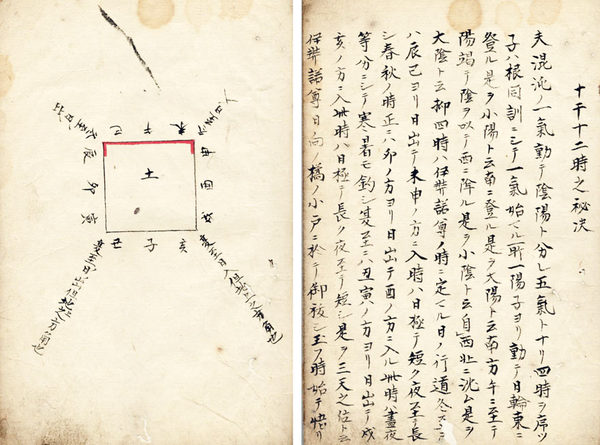 十干十二時之秘決
夫混沌ノ一氣動テ陰陽ト分レ五氣トナリ四時ヲ序
子ハ根同訓ニシテ一氣始ル所一陽子ヨリ動テ日輪東
登ル是ヲ小陽ト云南ニ登ル是ヲ太陽ト云南方午ニ至テ
陽竭テ陰ヲ以テ西ニ降ル是ヲ小陰ト云自西北ニ沈ム是ヲ
大陰ト云抑四時ハ伊弉諾尊ノ時ニ定ル日ノ行道冬至ニ
ハ辰巳ヨリ日出テ未申ノ方ニ入時ハ日極テ短ク夜至テ長
シ春秋ノ時正ニハ卯ノ方ヨリ日出テ酉ノ方ニ入ル此時晝夜
等分ニシテ寒暑モ釣シ夏至ニハ丑寅ノ方ヨリ日出テ戌
亥ノ方ニ入此時ハ日極テ長ク夜至テ短シ是ヲ三天之位ト云
伊弉諾尊日向ノ橘ノ小戸ニ於テ御祓シ玉フ時始テ悟リ
未
午
巳
申
酉
戌
土
辰
卯
寅
亥
子
丑
冬至日入
冬至日出
夏至日入但
之方角也
夏至日出但
之方角也